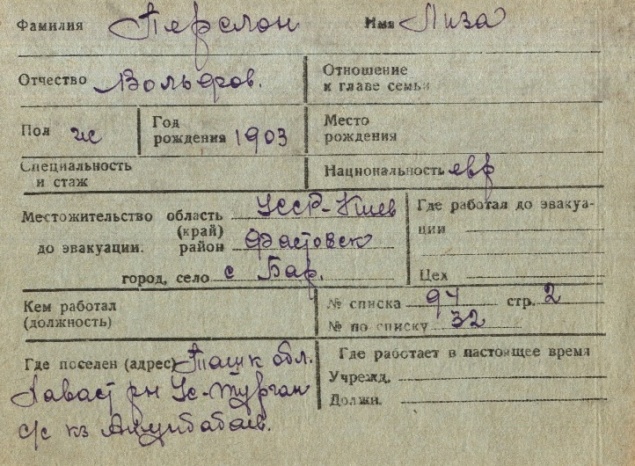 Фамилия Перслон Имя Лиза
Отчество Вольфров. Отношение
к главе семьи
Пол ж Год
рождения 1903 Место
рождения
Специальность
и стаж Национальность евр
Местожительство область УССР-Киев Где работал до эвакуа-
(край) ции
до эвакуации. район Фастовск
город, село с Бар. Цех
Кем работал
(должность) № списка 94 стр. 2
№ по списку 32
Где поселен (адрес) Ташк обл. Где работает в настоящее время
Хаваст рн Ус- Учрежд.
Должн.
с/с кз